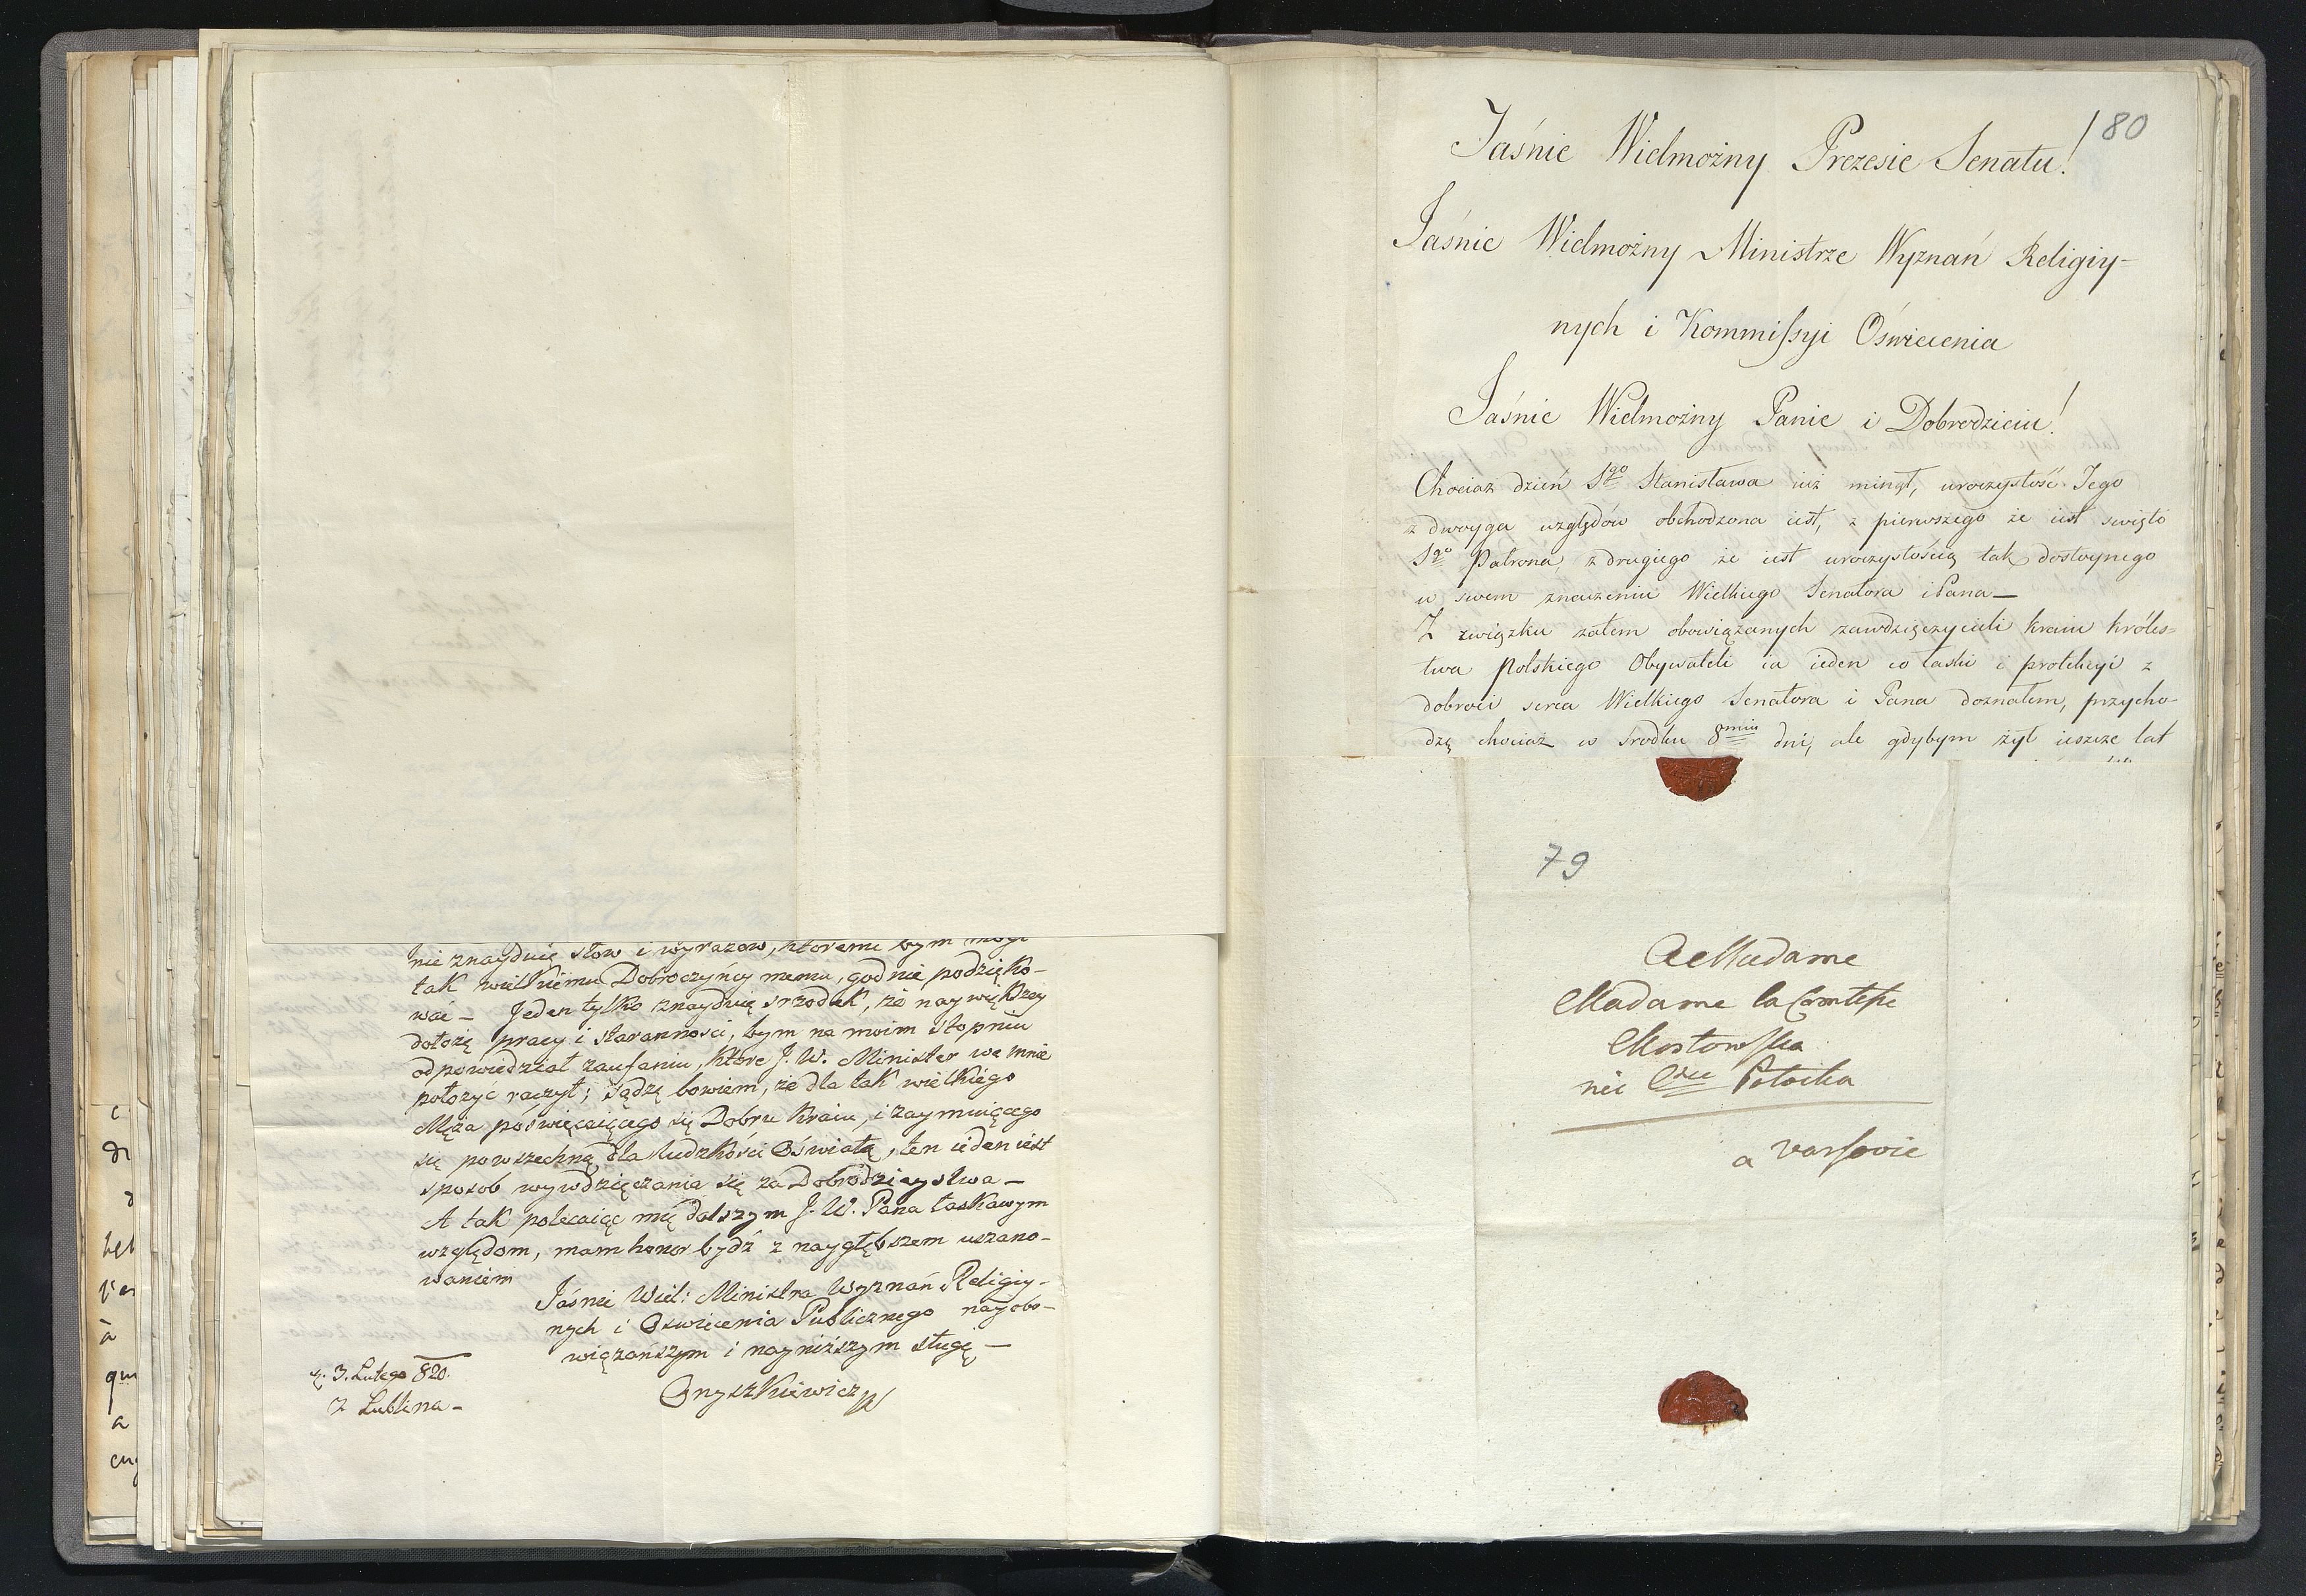 nie znayduię słow i wyrazow, ktoremi bym mogł
tak wielkiemu Dobroczyńcy memu, godnie podzięko-
wać – Jeden tylko znayduię srzodek, że naywiększey
dołożę pracy i staranności, bym na moim stopniu
odpowiedział zaufaniu, które J. W. Minister we mnie
położyć raczył; sądzę bowiem, że dla tak wielkiégo
Męża poświęcaiącego się Dobru Kraiu, i zaymuiącego
się powszechną dla ludzkości Oświatą, ten ieden iest
sposob wywdzięczania się za Dobrodzieystwa –
A tak polecaiąc mię dalszym J. W. Pana łaskawym
względom, mam honor bydź z naygłębszem uszano-
waniem
Jaśnie Wiel: Ministra Wyznań Religiy-
nych i Oswiecenia Publicznego nayobo-
wiązańszym i nayniższym sługą –
d. 3. Lutego 820.
z Lublina –
Onyszkiewicz
80
Jaśnie Wielmożny Prezesie Senatu!
Jaśnie Wielmożny Ministrze Wyznań Religiy=
nych i Kommissyi Oświecenia
Jaśnie Wielmożny Panie i Dobrodzieiu!
Chociaz dzień Sgo Stanisława iuż minął, uroczystość Jego
z dwoyga względów obchodzona iest, z pierwszego że iest swięto
Sgo Patrona, z drugiego że iest uroczystością tak dostoynego
w swem znaczeniu Wielkiego Senatora i Pana –
Z związku zatem obowiązanych zawdzięczycieli kraiu króles=
twa Polskiego Obywateli ia ieden co łaski i protekcyi z
dobroci serca Wielkiego Senatora i Pana doznałem, przycho-
dzę chociaż w srodku 8miu dni, ale gdybym żył ieszcze lat
79
A Madame
Madame la Comtesse
Mostowska
née Csse Potocka
a Varsovie